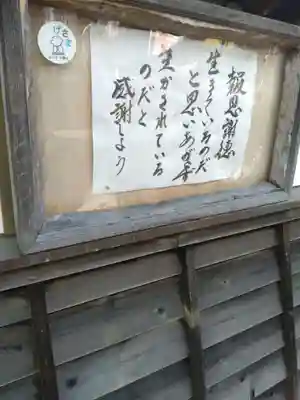 報恩謝徳
生きているのだ
と思いあがらず
生かされている
のだと
感謝しよう